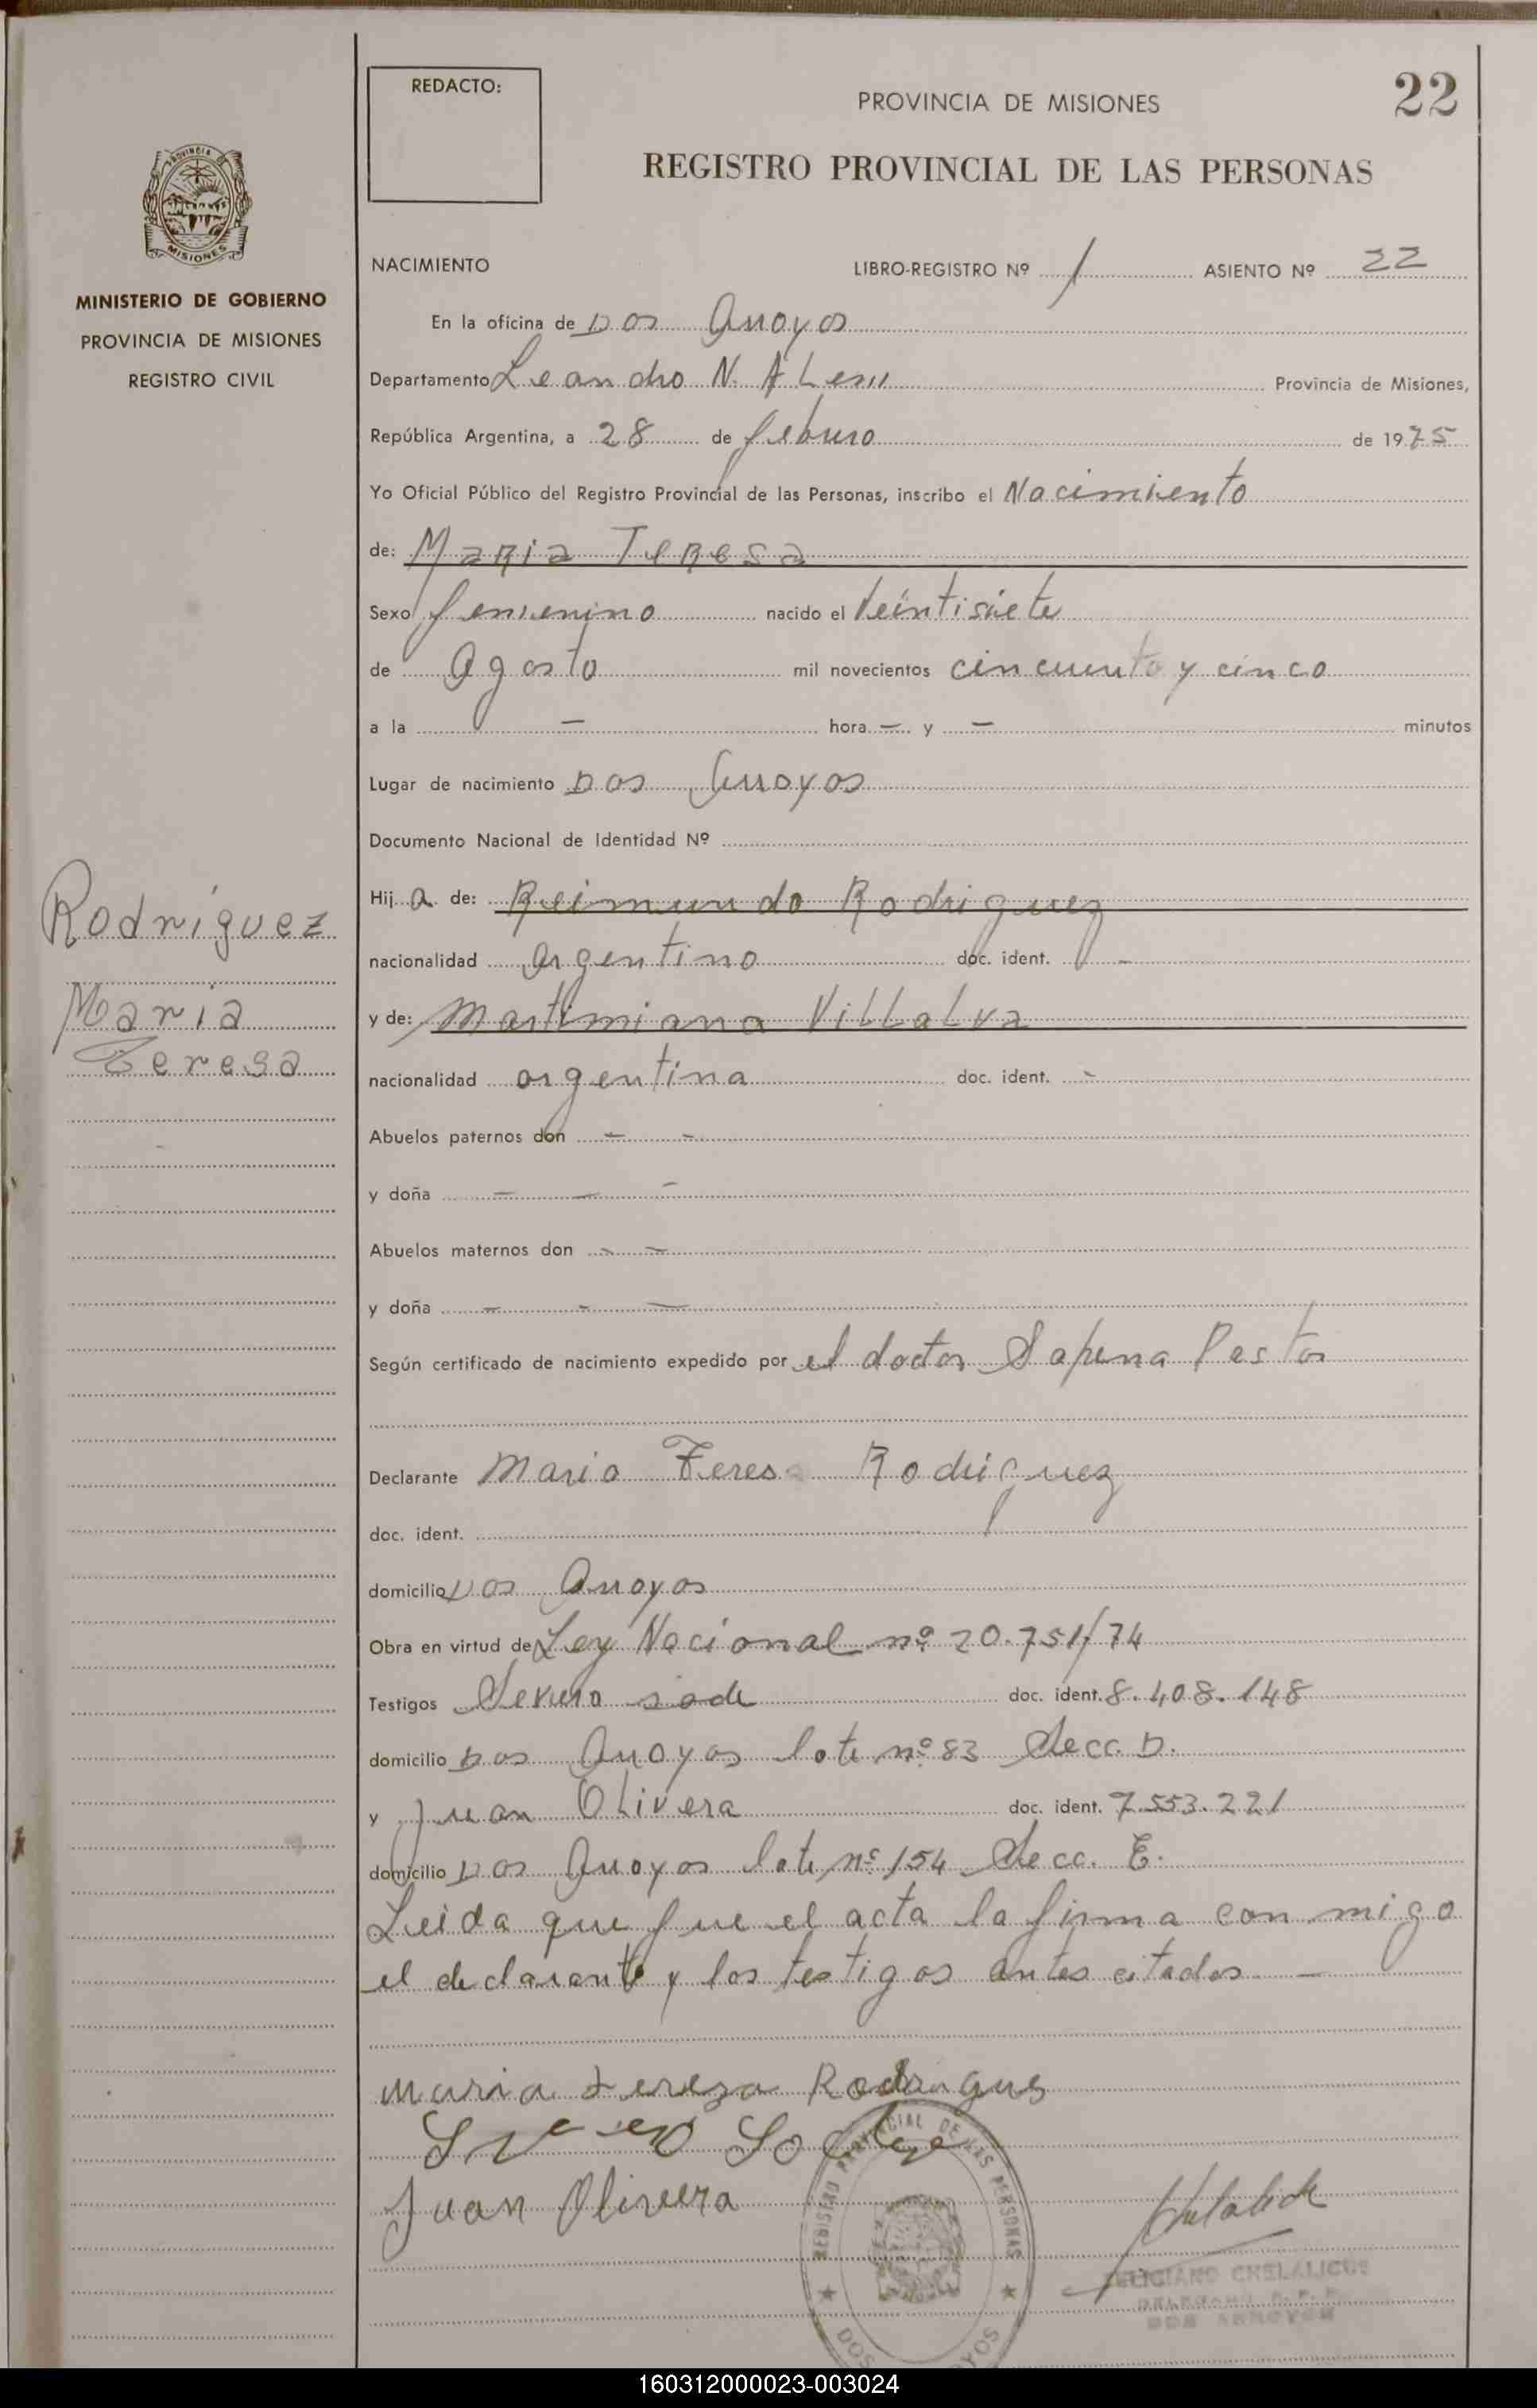 REDACTO:
PROVINCIA DE MISIONES
22
REGISTRO PROVINCIAL DE LAS PERSONAS
PROVINCIA DE
MISIONES
MINISTERIO DE GOBIERNO
PROVINCIA DE MISIONES
REGISTRO CIVIL
NACIMIENTO LIBRO-REGISTRO Nº 1 ASIENTO Nº 22
En la oficina de Dos Arroyos
Departamento Leandro N. ALem Provincia de Misiones,
República Argentina, a 28 de febrero de 1975
Yo Oficial Público del Registro Provincial de las Personas, inscribo el Nacimiento
de: Maria Teresa
Sexo femenino nacido el Veintisiete
de Agosto mil novecientos cincuenta y cinco
a la - hora - y - minutos
Lugar de nacimiento Dos Arroyos
Documento Nacional de Identidad Nº
Hij a de: Reimundo Rodriguez
nacionalidad argentino doc. ident. -
y de: Martimiana ViLLaLva
nacionalidad argentina doc. ident. -
Rodríguez
María
Teresa
Abuelos paternos don - -
y doña - - -
Abuelos maternos don - -
y doña - - -
Según certificado de nacimiento expedido por el doctor Sapena Pastor
Declarante Maria Teresa Rodriguez
doc. ident.
domicilio Dos Arroyos
Obra en virtud de Ley Nacional nº 20.751/74
Testigos Severo sode doc. ident. 8.408.148
domicilio Dos Arroyos lote nº 83 Secc. D.
y Juan OLivera doc. ident. 7.553.221
domicilio Dos Arroyos lote nº 154 Secc. E.
Leida que fue el acta la firma con migo
el declarante y los testigos antes citados -
maria tereza Rodrigues
Juan Olivera
REGISTRO PROVINCIAL DE LAS PERSONAS
DOS ARROYOS
FELICIANO CHELALICHE
DELEGADO R. P. P.
DOS ARROYOS
160312000023-003024